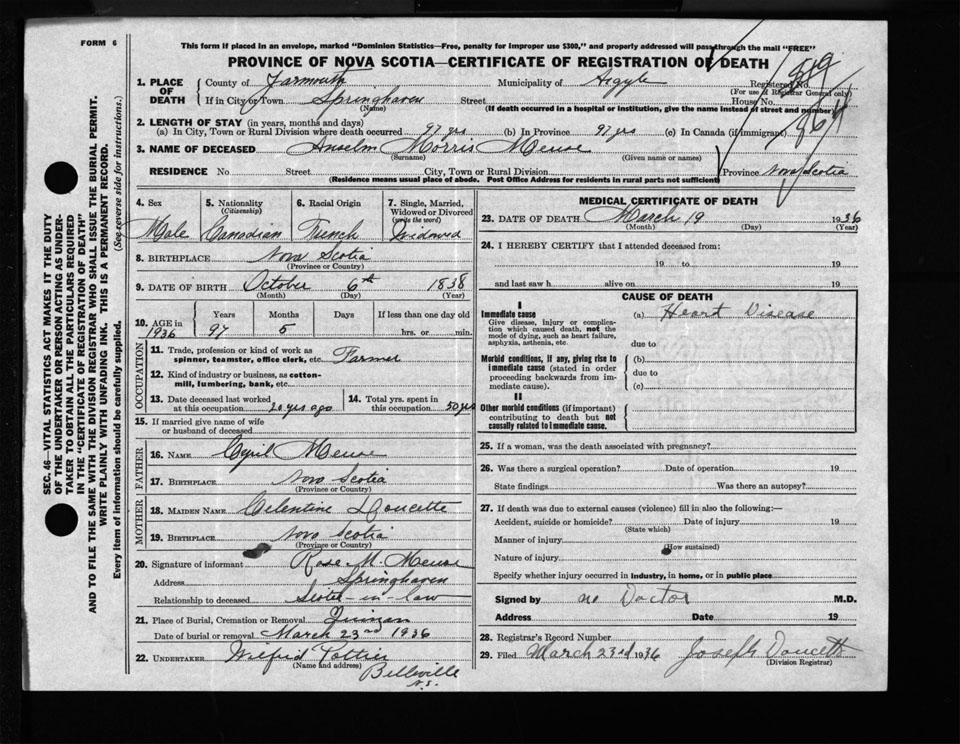 FORM 6
This form if placed in an envelope, marked "Dominion Statistics—Free, penalty for improper use $300," and properly addressed will pass through the mail "FREE"
PROVINCE OF NOVA SCOTIA—CERTIFICATE OF REGISTRATION OF DEATH
SEC. 46—VITAL STATISTICS ACT MAKES IT THE DUTY
OF THE UNDERTAKER OR PERSON ACTING AS UNDER-
TAKER TO OBTAIN ALL THE PARTICULARS REQUIRED
IN THE "CERTIFICATE OF REGISTRATION OF DEATH"
AND TO FILE THE SAME WITH THE DIVISION REGISTRAR WHO SHALL ISSUE THE BURIAL PERMIT.
WRITE PLAINLY WITH UNFADING INK. THIS IS A PERMANENT RECORD.
Every item of information should be carefully supplied. (See reverse side for instructions.)
1. PLACE OF DEATH
County of Yarmouth Municipality of Argyle Registered No.
(For use of Registrar General only)
If in City or Town Springhaven Street House No.
(Name) (If death occurred in a hospital or institution, give the name instead of street and number)
2. LENGTH OF STAY (in years, months and days)
(a) In City, Town or Rural Division where death occurred 97 yrs (b) In Province 97 yrs (c) In Canada (if immigrant)
3. NAME OF DECEASED Anselm Morris Meuse
(Surname) (Given name or names)
RESIDENCE No. Street City, Town or Rural Division Province Nova Scotia
(Residence means usual place of abode. Post Office Address for residents in rural parts not sufficient)
4. Sex Male
5. Nationality (Citizenship) Canadian
6. Racial Origin French
7. Single, Married, Widowed or Divorced (write the word) Widowed
8. BIRTHPLACE Nova Scotia
(Province or Country)
9. DATE OF BIRTH October 6th 1838
(Month) (Day) (Year)
10. AGE in 1936 Years 97 Months 5 Days If less than one day old hrs. or min.
OCCUPATION
11. Trade, profession or kind of work as spinner, teamster, office clerk, etc. Farmer
12. Kind of industry or business, as cotton-mill, lumbering, bank, etc.
13. Date deceased last worked at this occupation 20 yrs ago
14. Total yrs. spent in this occupation 50 yrs
15. If married give name of wife or husband of deceased
FATHER
16. NAME Cyril Meuse
17. BIRTHPLACE Nova Scotia
(Province or Country)
MOTHER
18. MAIDEN NAME Celentine Doucette
19. BIRTHPLACE Nova Scotia
(Province or Country)
20. Signature of informant Rose M. Meuse
Address Springhaven
Relationship to deceased Sister-in-law
21. Place of Burial, Cremation or Removal Quinan
Date of burial or removal March 23rd 1936
22. UNDERTAKER Wilfrid Pottier
(Name and address) Belleville
N.S.
MEDICAL CERTIFICATE OF DEATH
23. DATE OF DEATH March 19 1936
(Month) (Day) (Year)
24. I HEREBY CERTIFY that I attended deceased from:
19 to 19
and last saw h alive on 19
CAUSE OF DEATH
I
Immediate cause
Give disease, injury or complication which caused death, not the mode of dying, such as heart failure, asphyxia, asthenia, etc.
(a) Heart Disease
due to
Morbid conditions, if any, giving rise to immediate cause (stated in order proceeding backwards from immediate cause).
(b)
due to
(c)
II
Other morbid conditions (if important) contributing to death but not causally related to immediate cause.
25. If a woman, was the death associated with pregnancy?
26. Was there a surgical operation? Date of operation 19
State findings Was there an autopsy?
27. If death was due to external causes (violence) fill in also the following:—
Accident, suicide or homicide? Date of injury 19
(State which)
Manner of injury
(How sustained)
Nature of injury
Specify whether injury occurred in industry, in home, or in public place
Signed by no Doctor M.D.
Address Date 19
28. Registrar's Record Number
29. Filed March 23rd 1936 Joseph Doucette
(Division Registrar)